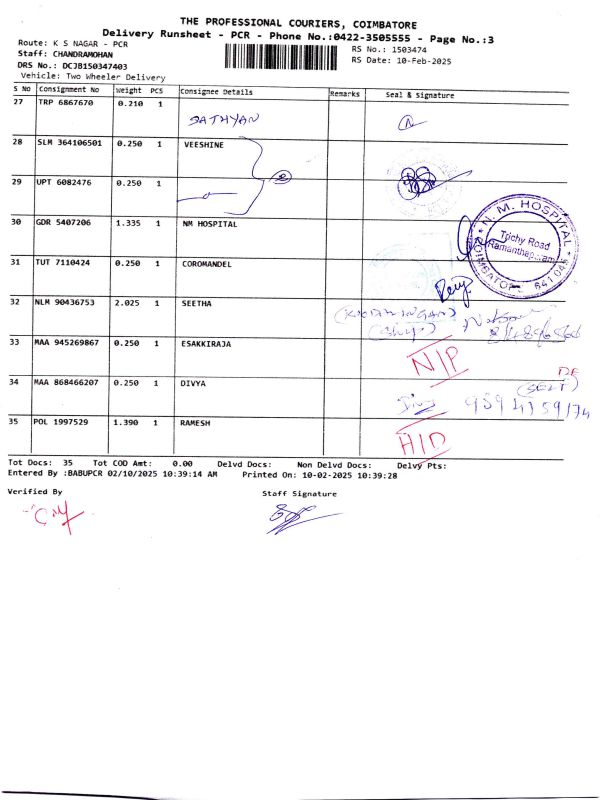 THE PROFESSIONAL COURIERS, COIMBATORE
Delivery Runsheet - PCR - Phone No.:0422-3505555 - Page No.:3
Route: K S NAGAR - PCR
RS No.: 1503474
Staff: CHANDRAMOHAN
RS Date: 10-Feb-2025
DRS No.: DCJB150347403
Vehicle: Two Wheeler Delivery
S No Consignment No Weight PCS Consignee Details Remarks Seal & Signature
27 TRP 6867670 0.210 1
SATHYAN
28 SLM 364106501 0.250 1 VEESHINE
29 UPT 6082476 0.250 1
30 GDR 5407206 1.335 1 NM HOSPITAL
N. M. HOSPITAL
Trichy Road
Ramanthapuram
COIMBATORE 641 045
31 TUT 7110424 0.250 1 COROMANDEL
32 NLM 90436753 2.025 1 SEETHA
33 MAA 945269867 0.250 1 ESAKKIRAJA
N/P
34 MAA 868466207 0.250 1 DIVYA
DE
(SELF)
35 POL 1997529 1.390 1 RAMESH
H/D
Tot Docs: 35 Tot COD Amt: 0.00 Delvd Docs: Non Delvd Docs: Delvy Pts:
Entered By :BABUPCR 02/10/2025 10:39:14 AM Printed On: 10-02-2025 10:39:28
Verified By Staff Signature